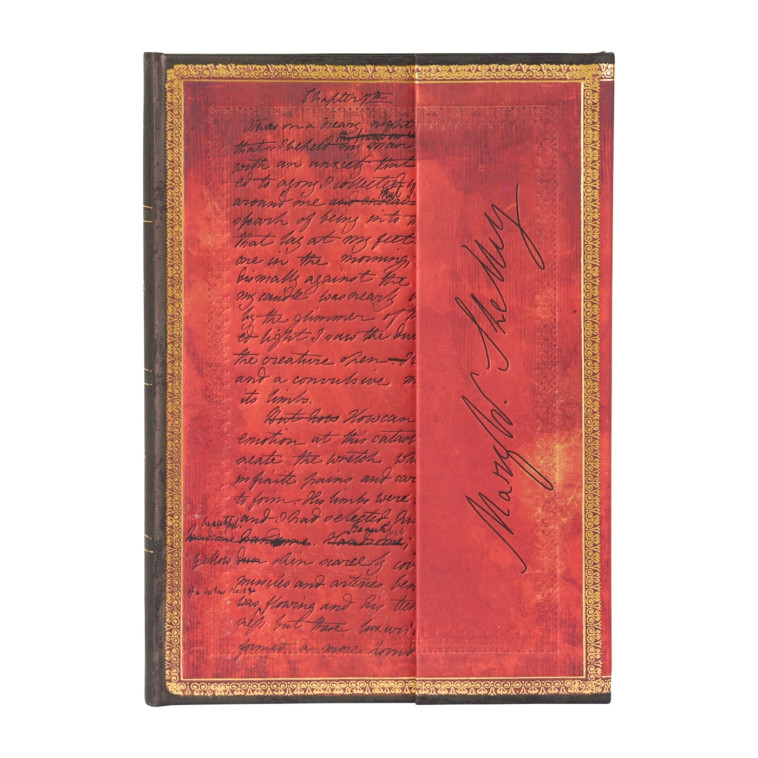 Chapter 7th
It was on a dreary night
that I beheld my man
with an anxiety that
ed to agony I collected
around me and endeav
spark of being into
that lay at my feet
one in the morning,
dismally against the
my candle was nearly
by the glimmer of
ed light I saw the du
the creature open — I
and a convulsive m
its limbs.
But how How can
emotion at this catas
create the wretch wh
infinite pains and car
to form. His limbs were
and I had selected his
beautiful
handsome handsome. Handsome;
beautiful
yellow dun skin scarcely cov
muscles and arteries ben
of a lustrous black &
was flowing and his teeth
ness but these luxuri
formed a more horri
Mary W. Shelley